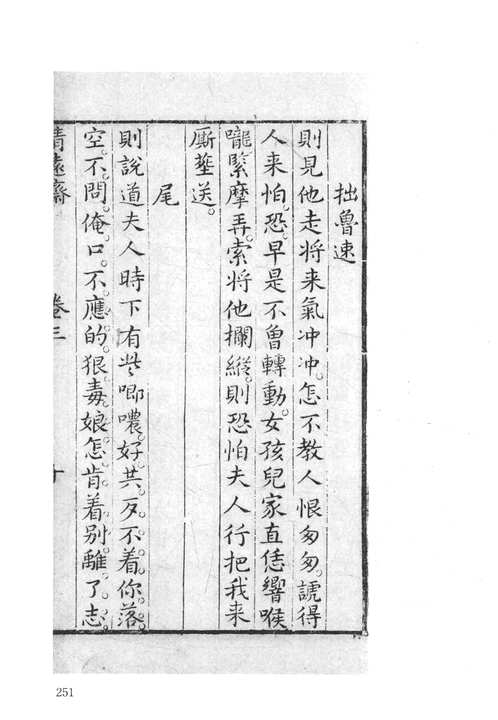 拙魯速
則見他走將来氣冲冲。怎不教人恨匆匆。諕得
人来怕恐。早是不曾轉動。女孩兒家直恁響喉
嚨緊摩弄。索將他攔縱。則恐怕夫人行把我来
厮塟送。
尾
則說道夫人時下有些唧噥。好共歹不着你落
空。不問俺口不應的狠毒娘怎肯着别離了志
清遠齋 卷三 十
251